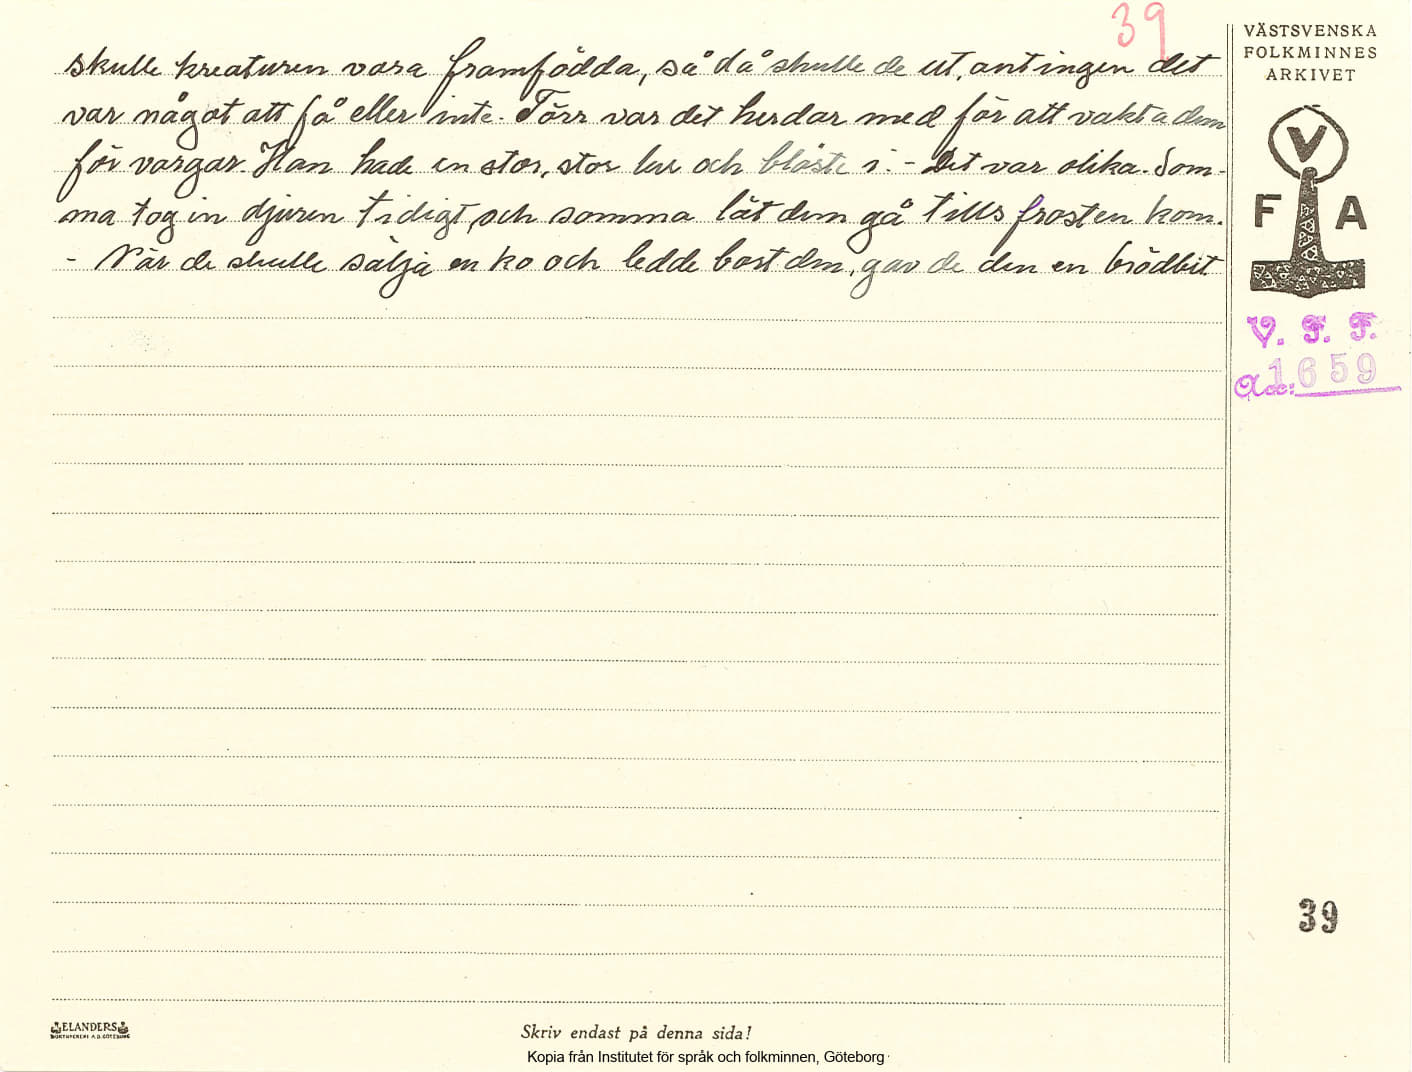 39
VÄSTSVENSKA
FOLKMINNES
ARKIVET
skulle kreaturen vara framfödda, så då skulle de ut, antingen det
var något att få eller inte. Förr var det herdar med för att vakta dem
för vargar. Han hade en stor, stor lur och blåste i. - Det var olika. Som-
ma tog in djuren tidigt, och somma lät dem gå tills frosten kom.
- När de skulle sälja en ko och ledde bort den, gav de den en brödbit.
V
F A
V. F. F.
Acc: 1659
39
ELANDERS
BOKTRYCKERI A.B. GÖTEBORG
Skriv endast på denna sida!
Kopia från Institutet för språk och folkminnen, Göteborg